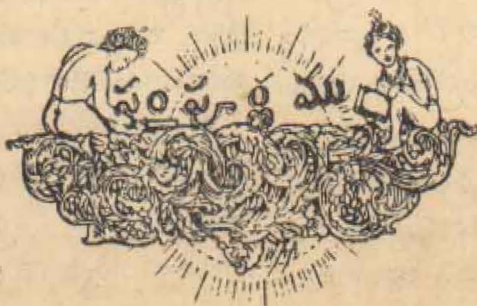 సంపూర్ణము